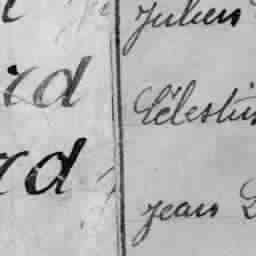 Julien
rd
Célestin
rd
Jean